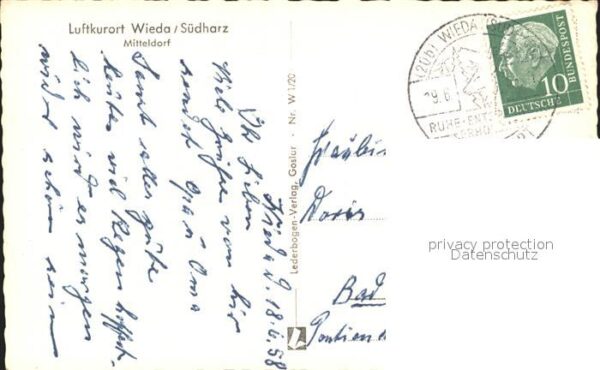 Luftkurort Wieda/Südharz
Mitteldorf
Wieda, d. 18.6.58
Ihr Lieben
Viele Grüße von hier
sendet Opa u Oma
Sonst alles gute
heute viel Regen hoffent-
lich wird es morgen
wieder schön sein
Lederbogen-Verlag, Goslar · Nr. W 1/20
(20b) WIEDA (SÜ
19.6
RUHE · ENT
10
DEUTSCHE
BUNDESPOST
Fräulein
Doris
Bad
privacy protection
Datenschutz